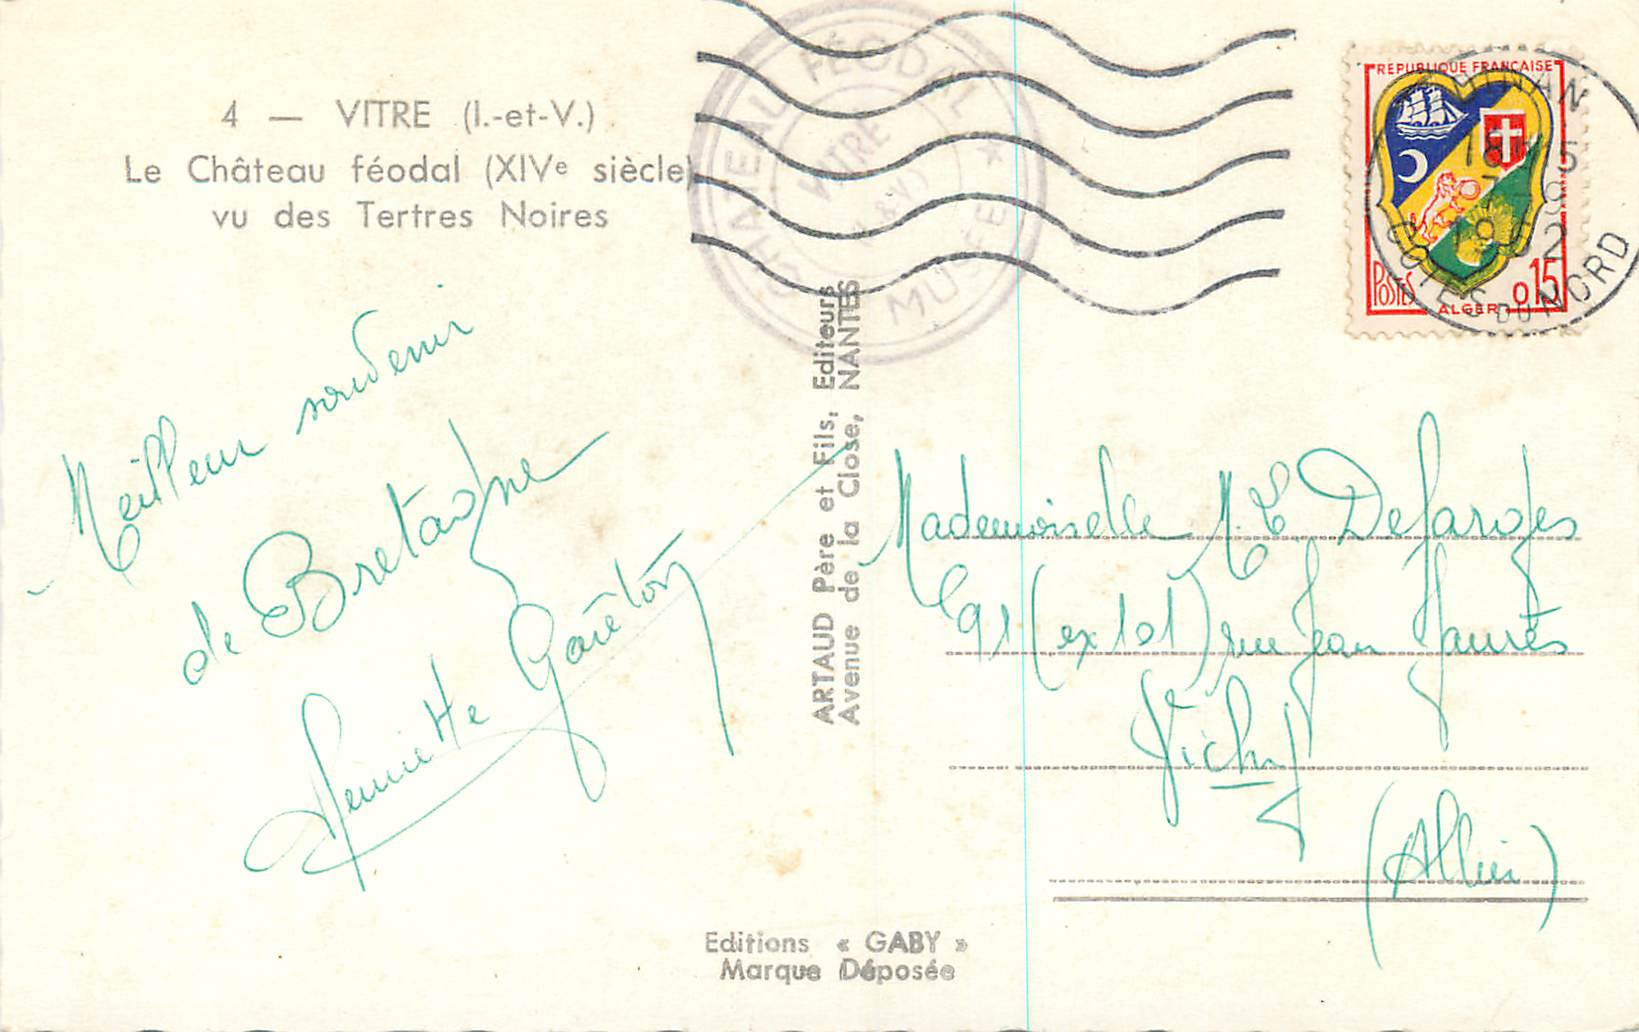 4 — VITRE (I.-et-V.)
Le Château féodal (XIVe siècle)
vu des Tertres Noires
CHATEAU FÉODAL ★ MUSÉE
VITRE
REPUBLIQUE FRANÇAISE
POSTES
ALGER
0 15
18 H 15
1962
COTES DU NORD
Meilleur souvenir
de Bretagne
Henriette
ARTAUD Père et Fils, Editeurs
Avenue de la Close, NANTES
Mademoiselle M. C Defarges
91 (ex 101) rue Jean Jaurès
Vichy
(Allier)
Editions « GABY »
Marque Déposée